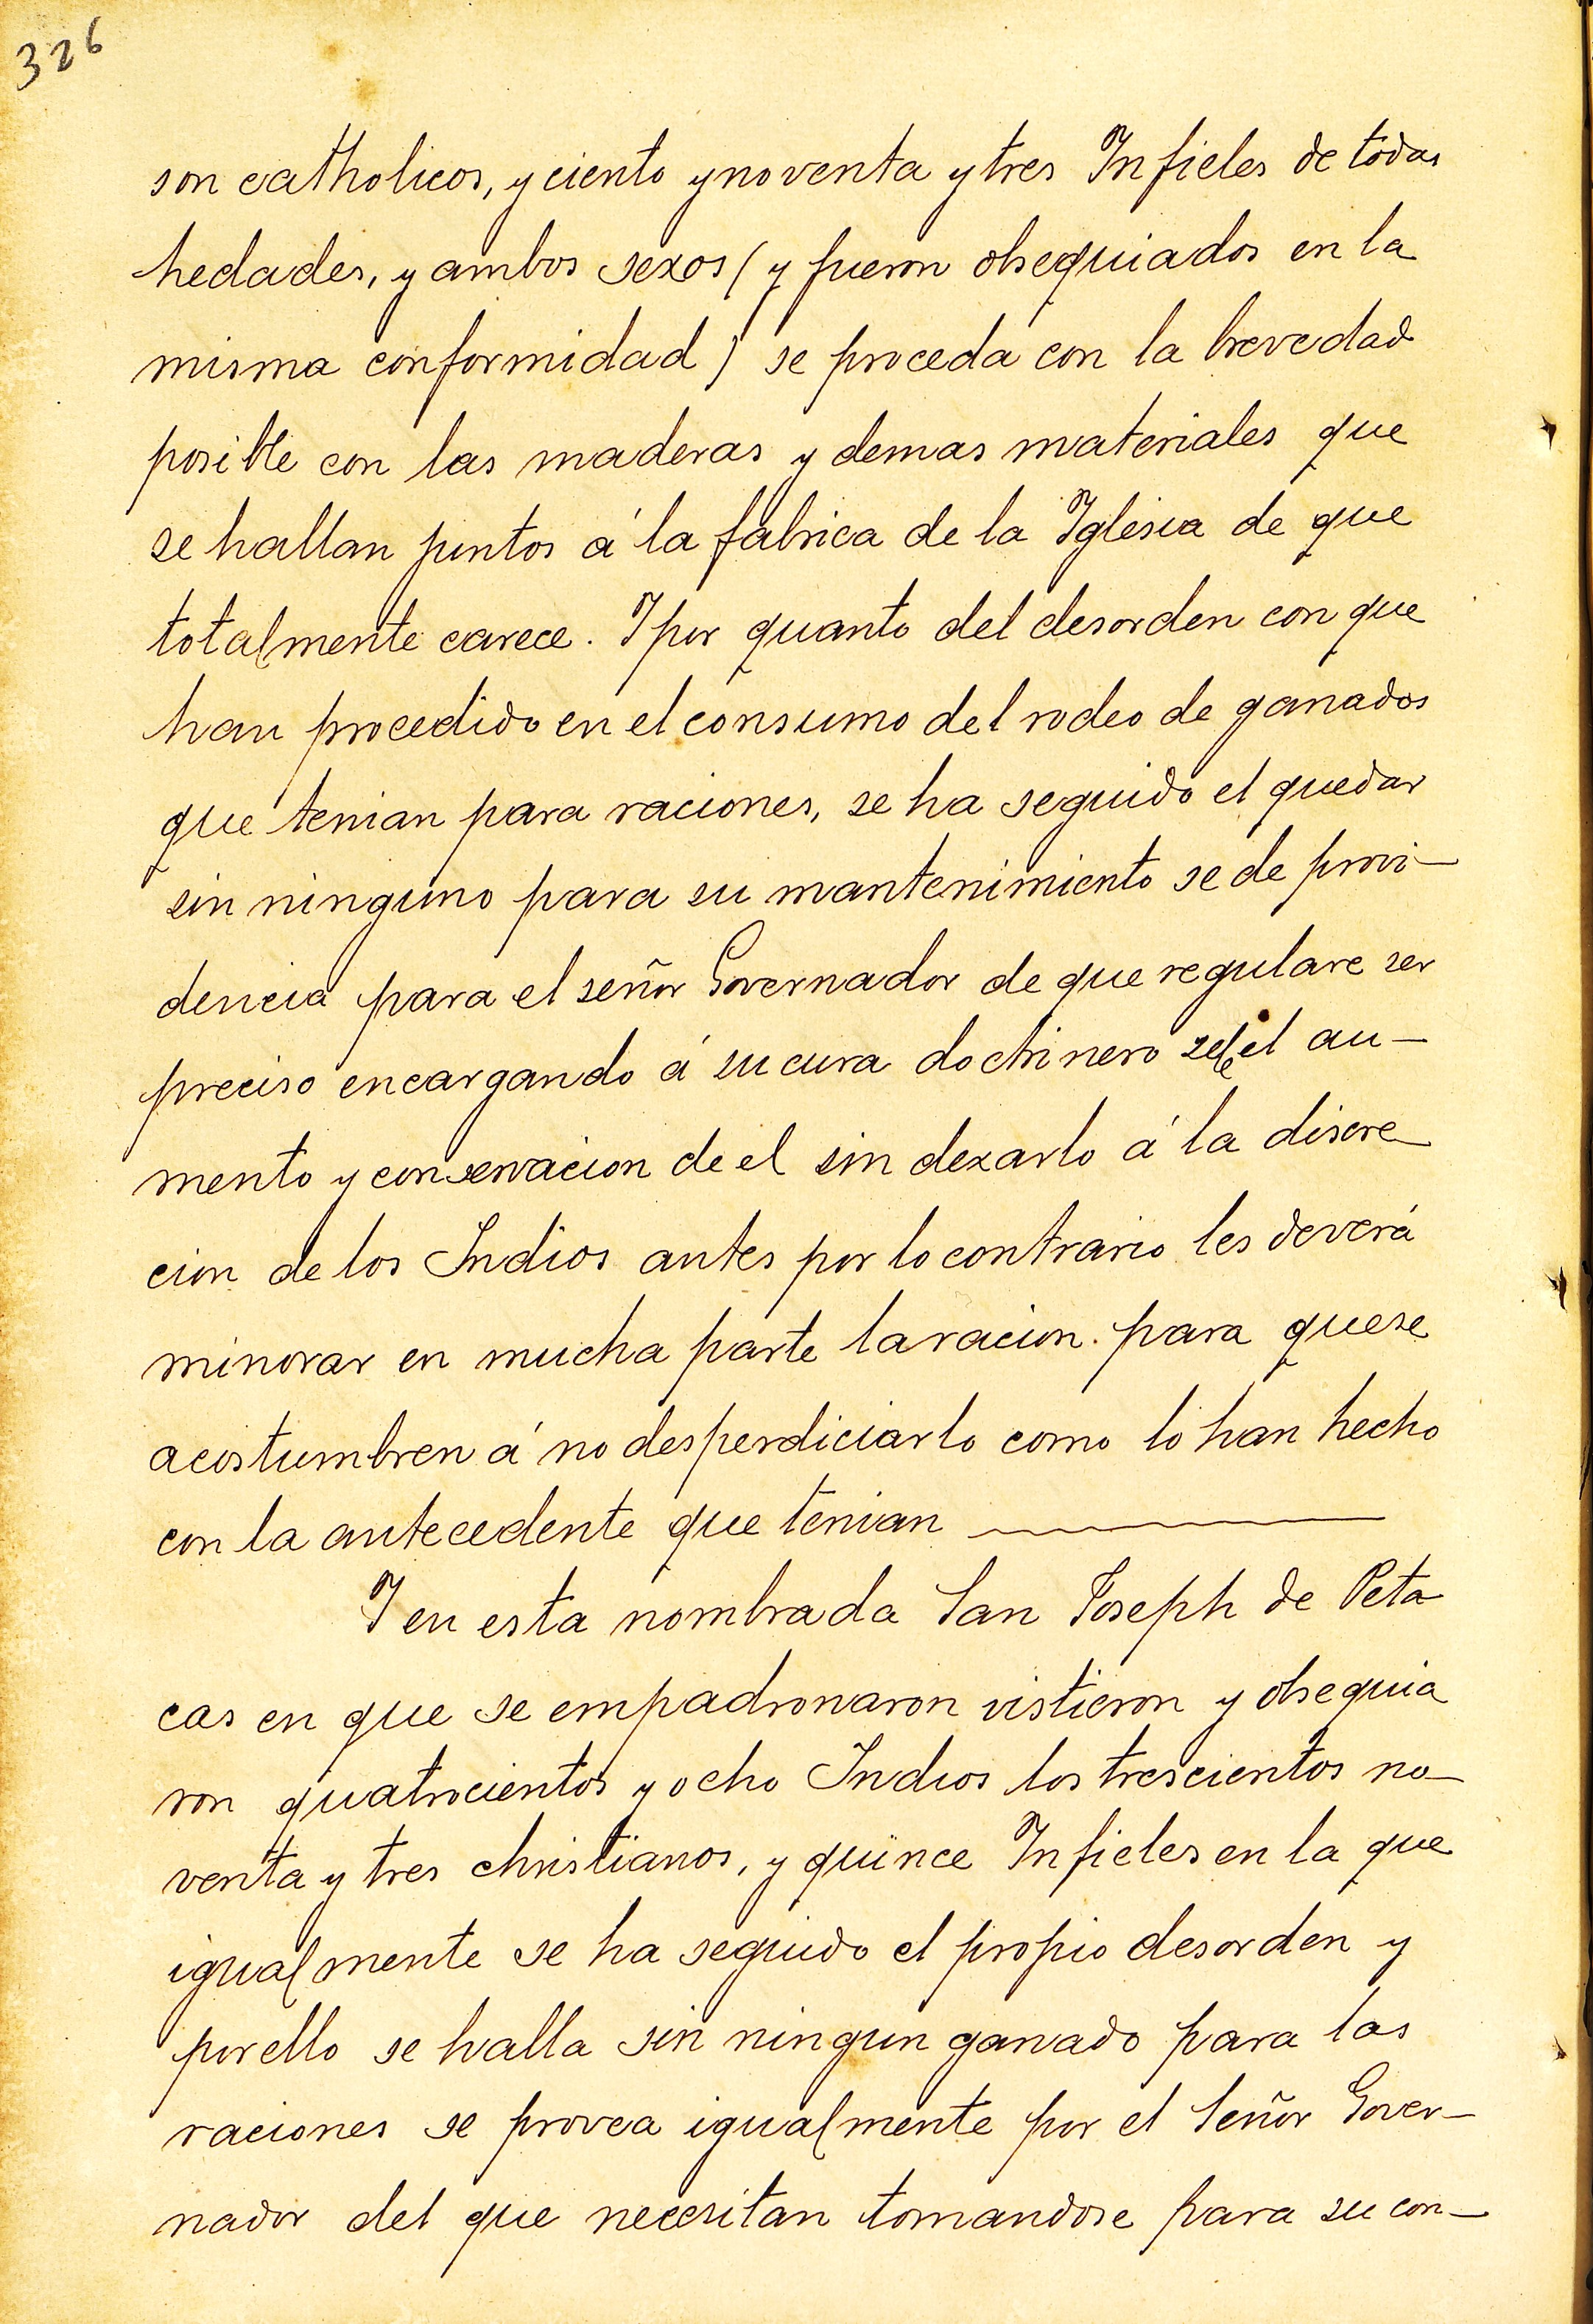 326
son catholicos, y ciento y noventa y tres Infieles de todas
hedades, y ambos sexos (y fueron obsequiados en la
misma conformidad) se proceda con la brevedad
posible con las maderas y demas materiales que
se hallan juntos á la fabrica de la Iglesia de que
totalmente carece. I por quanto del desorden con que
han procedido en el consumo del rodeo de ganados
que tenian para raciones, se ha seguido el quedar
sin ninguno para su mantenimiento se de provi-
dencia para el señor Governador de que regulare ser
preciso encargando á su cura doctrinero zele el au-
mento y conservacion de el sin dexarlo á la discre-
cion de los Indios antes por lo contrario les deverá
minorar en mucha parte la racion. para que se
acostumbren á no desperdiciarlo como lo han hecho
con la antecedente que tenian
I en esta nombrada San Joseph de Peta-
cas en que se empadronaron vistieron y obsequia
ron quatrocientos y ocho Indios los trescientos no-
venta y tres christianos, y quince Infieles en la que
igualmente se ha seguido el propio desorden y
por ello se halla sin ningun ganado para las
raciones se provea igualmente por el Señor Gover-
nador del que necesitan tomandose para su con-